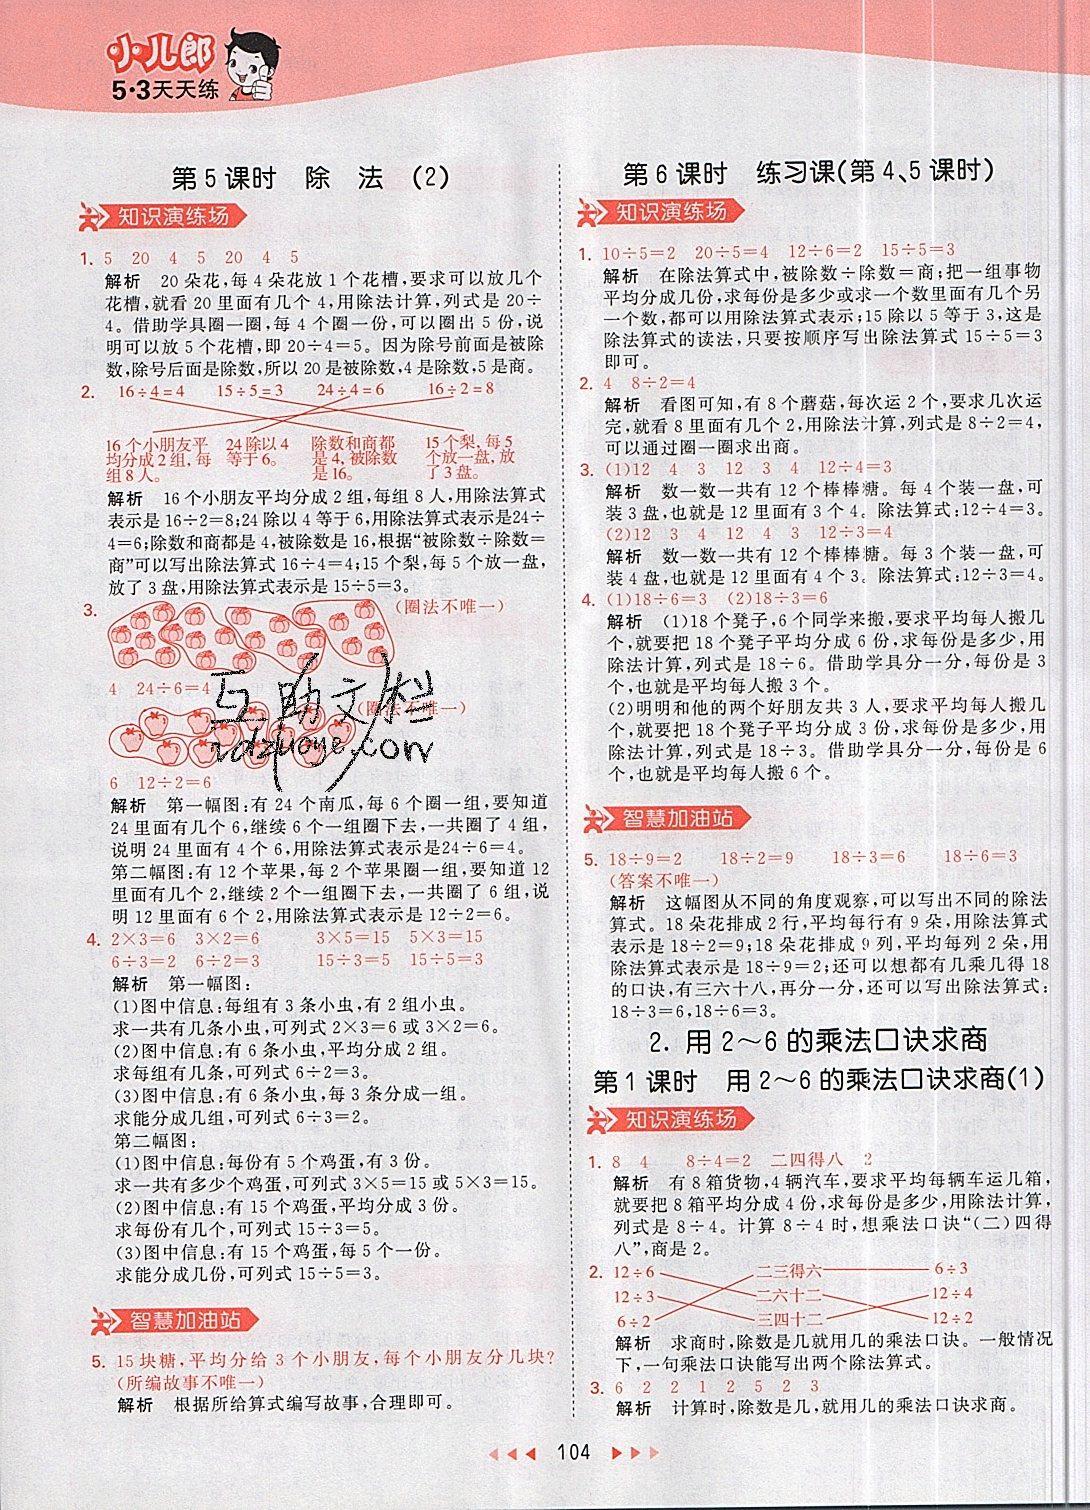 小儿郎
5·3天天练
第5课时 除 法 (2)
知识演练场
1. 5 20 4 5 20 4 5
解析 20朵花,每4朵花放1个花槽,要求可以放几个
花槽,就看20里面有几个4,用除法计算,列式是20÷
4。借助学具圈一圈,每4个圈一份,可以圈出5份,说
明可以放5个花槽,即20÷4=5。因为除号前面是被除
数,除号后面是除数,所以20是被除数,4是除数,5是商。
2. 16÷4=4 15÷5=3 24÷4=6 16÷2=8
16个小朋友平 24除以4 除数和商都 15个梨,每5
均分成2组,每 等于6。 是4,被除数 个放一盘,放
组8人。 是16。 了3盘。
解析 16个小朋友平均分成2组,每组8人,用除法算式
表示是16÷2=8;24除以4等于6,用除法算式表示是24÷
4=6;除数和商都是4,被除数是16,根据“被除数÷除数=
商”可以写出除法算式16÷4=4;15个梨,每5个放一盘,
放了3盘,用除法算式表示是15÷5=3。
3. (圈法不唯一)
4 24÷6=4
(圈法不唯一)
互助文档
6 12÷2=6
解析 第一幅图:有24个南瓜,每6个圈一组,要知道
24里面有几个6,继续6个一组圈下去,一共圈了4组,
说明24里面有4个6,用除法算式表示是24÷6=4。
第二幅图:有12个苹果,每2个苹果圈一组,要知道12
里面有几个2,继续2个一组圈下去,一共圈了6组,说
明12里面有6个2,用除法算式表示是12÷2=6。
4. 2×3=6 3×2=6 3×5=15 5×3=15
6÷3=2 6÷2=3 15÷3=5 15÷5=3
解析 第一幅图:
(1)图中信息:每组有3条小虫,有2组小虫。
求一共有几条小虫,可列式2×3=6或3×2=6。
(2)图中信息:有6条小虫,平均分成2组。
求每组有几条小虫,可列式6÷2=3。
(3)图中信息:有6条小虫,每3条小虫一组。
求能分成几组,可列式6÷3=2。
第二幅图:
(1)图中信息:每份有5个鸡蛋,有3份鸡蛋。
求一共有多少个鸡蛋,可列式3×5=15或5×3=15。
(2)图中信息:有15个鸡蛋,平均分成3份。
求每份有几个,可列式15÷3=5。
(3)图中信息:有15个鸡蛋,每5个一份。
求能分成几份,可列式15÷5=3。
智慧加油站
5. 15块糖,平均分给3个小朋友,每个小朋友分几块?
(所编故事不唯一)
解析 根据所给算式编写故事,合理即可。
第6课时 练习课(第4、5课时)
知识演练场
1. 10÷5=2 20÷5=4 12÷6=2 15÷5=3
解析 在除法算式中,被除数÷除数=商;把一组事物
平均分成几份,求每份是多少或求一个数里面有几个另
一个数,都可以用除法算式表示;15除以5等于3,这是
除法算式的读法,只要按顺序写出除法算式15÷5=3
即可。
2. 4 8÷2=4
解析 看图可知,有8个蘑菇,每次运2个,要求几次运
完,就看8里面有几个2,用除法计算,列式是8÷2=4,
可以通过圈一圈求出商。
3. (1)12 4 3 12 3 4 12÷4=3
解析 数一数一共有12个棒棒糖。每4个装一盘,可
装3盘,也就是12里面有3个4。除法算式:12÷4=3。
(2)12 3 4 12 4 3 12÷3=4
解析 数一数一共有12个棒棒糖。每3个装一盘,可
装4盘,也就是12里面有4个3。除法算式:12÷3=4。
4. (1)18÷6=3 (2)18÷3=6
解析 (1)18个凳子,6个同学来搬,要求平均每人搬几
个,就要把18个凳子平均分成6份,求每份是多少,用
除法计算,列式是18÷6。借助学具分一分,每份是3
个,也就是平均每人搬3个。
(2)明明和他的两个好朋友共3人,要求平均每人搬几
个,就要把18个凳子平均分成3份,求每份是多少,用
除法计算,列式是18÷3。借助学具分一分,每份是6
个,也就是平均每人搬6个。
智慧加油站
5. 18÷9=2 18÷2=9 18÷3=6 18÷6=3
(答案不唯一)
解析 这幅图从不同的角度观察,可以写出不同的除法
算式。18朵花排成2行,平均每行有9朵,用除法算式
表示是18÷2=9;18朵花排成9列,平均每列2朵,用
除法算式表示是18÷9=2;还可以想都有几乘几得18
的口诀,有三六十八,再分一分,还可以写出除法算式:
18÷3=6,18÷6=3。
2. 用2～6的乘法口诀求商
第1课时 用2～6的乘法口诀求商(1)
知识演练场
1. 8 4 8÷4=2 二四得八 2
解析 有8箱货物,4辆汽车,要求平均每辆车运几箱,
就要把8箱平均分成4份,求每份是多少,用除法计算,
列式是8÷4。计算8÷4时,想乘法口诀“(二)四得
八”,商是2。
2. 12÷6 二三得六 6÷3
12÷3 二六十二 12÷4
6÷2 三四十二 12÷2
解析 求商时,除数是几就用几的乘法口诀。一般情况
下,一句乘法口诀能写出两个除法算式。
3. 6 2 2 1 2 5 2 3
解析 计算时,除数是几,就用几的乘法口诀求商。
104